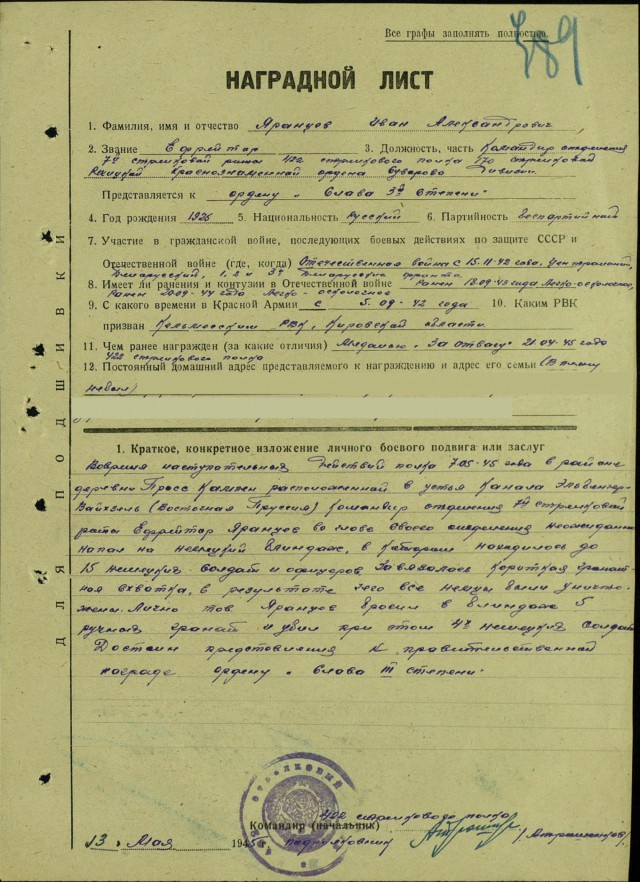 Все графы заполнять полностью.
389
НАГРАДНОЙ ЛИСТ
1. Фамилия, имя и отчество Яранцев Иван Александрович,
2. Звание Ефрейтор 3. Должность, часть Командир отделения
7й стрелковой роты 422 стрелкового полка 170 стрелковой
Речицкой Краснознаменной ордена Суворова Дивизии.
Представляется к ордену „Слава 3й Степени"
4. Год рождения 1925 5. Национальность Русский 6. Партийность Беспартийный
7. Участие в гражданской войне, последующих боевых действиях по защите СССР и
Отечественной войне (где, когда) Отечественная война с 15.11.42 года. Центральный,
Белорусский, 1, 2 и 3й Белорусские фронта
8. Имеет ли ранения и контузии в Отечественной войне Ранен 18.09.43 года Легко-осколочное,
Ранен 20.09.44 года Легко-осколочное
9. С какого времени в Красной Армии с 5.09.42 года 10. Каким РВК
призван Кельмезским РВК, Кировской области
11. Чем ранее награжден (за какие отличия) Медалью „За отвагу" 21.04.45 года
422 стрелкового полка
12. Постоянный домашний адрес представляемого к награждению и адрес его семьи
ДЛЯ ПОДШИВКИ
1. Краткое, конкретное изложение личного боевого подвига или заслуг
Вовремя наступательных Действий полка 7.05.45 года в районе
деревни Гросс Кампен расположенной в устья Канала Эльбингер-
Вайхзель (Восточная Пруссия) Командир отделения 7й стрелковой
роты Ефрейтор Яранцев во главе своего отделения неожиданно
напал на немецкий блиндаж, в котором находилось до
15 немецких солдат и офицеров. Завязалось короткая гранат-
ная схватка, в результате чего все немцы были уничто-
жены. Лично тов Яранцев бросил в блиндаж 5
ручных гранат и убил при этом 4х немецких солдат
Достоин представления к правительственной
награде ордену „Слава III степени"
СТРЕЛКОВЫЙ
422 стрелкового полка
Командир (начальник)
13 „ Мая 1945 г. подполковник